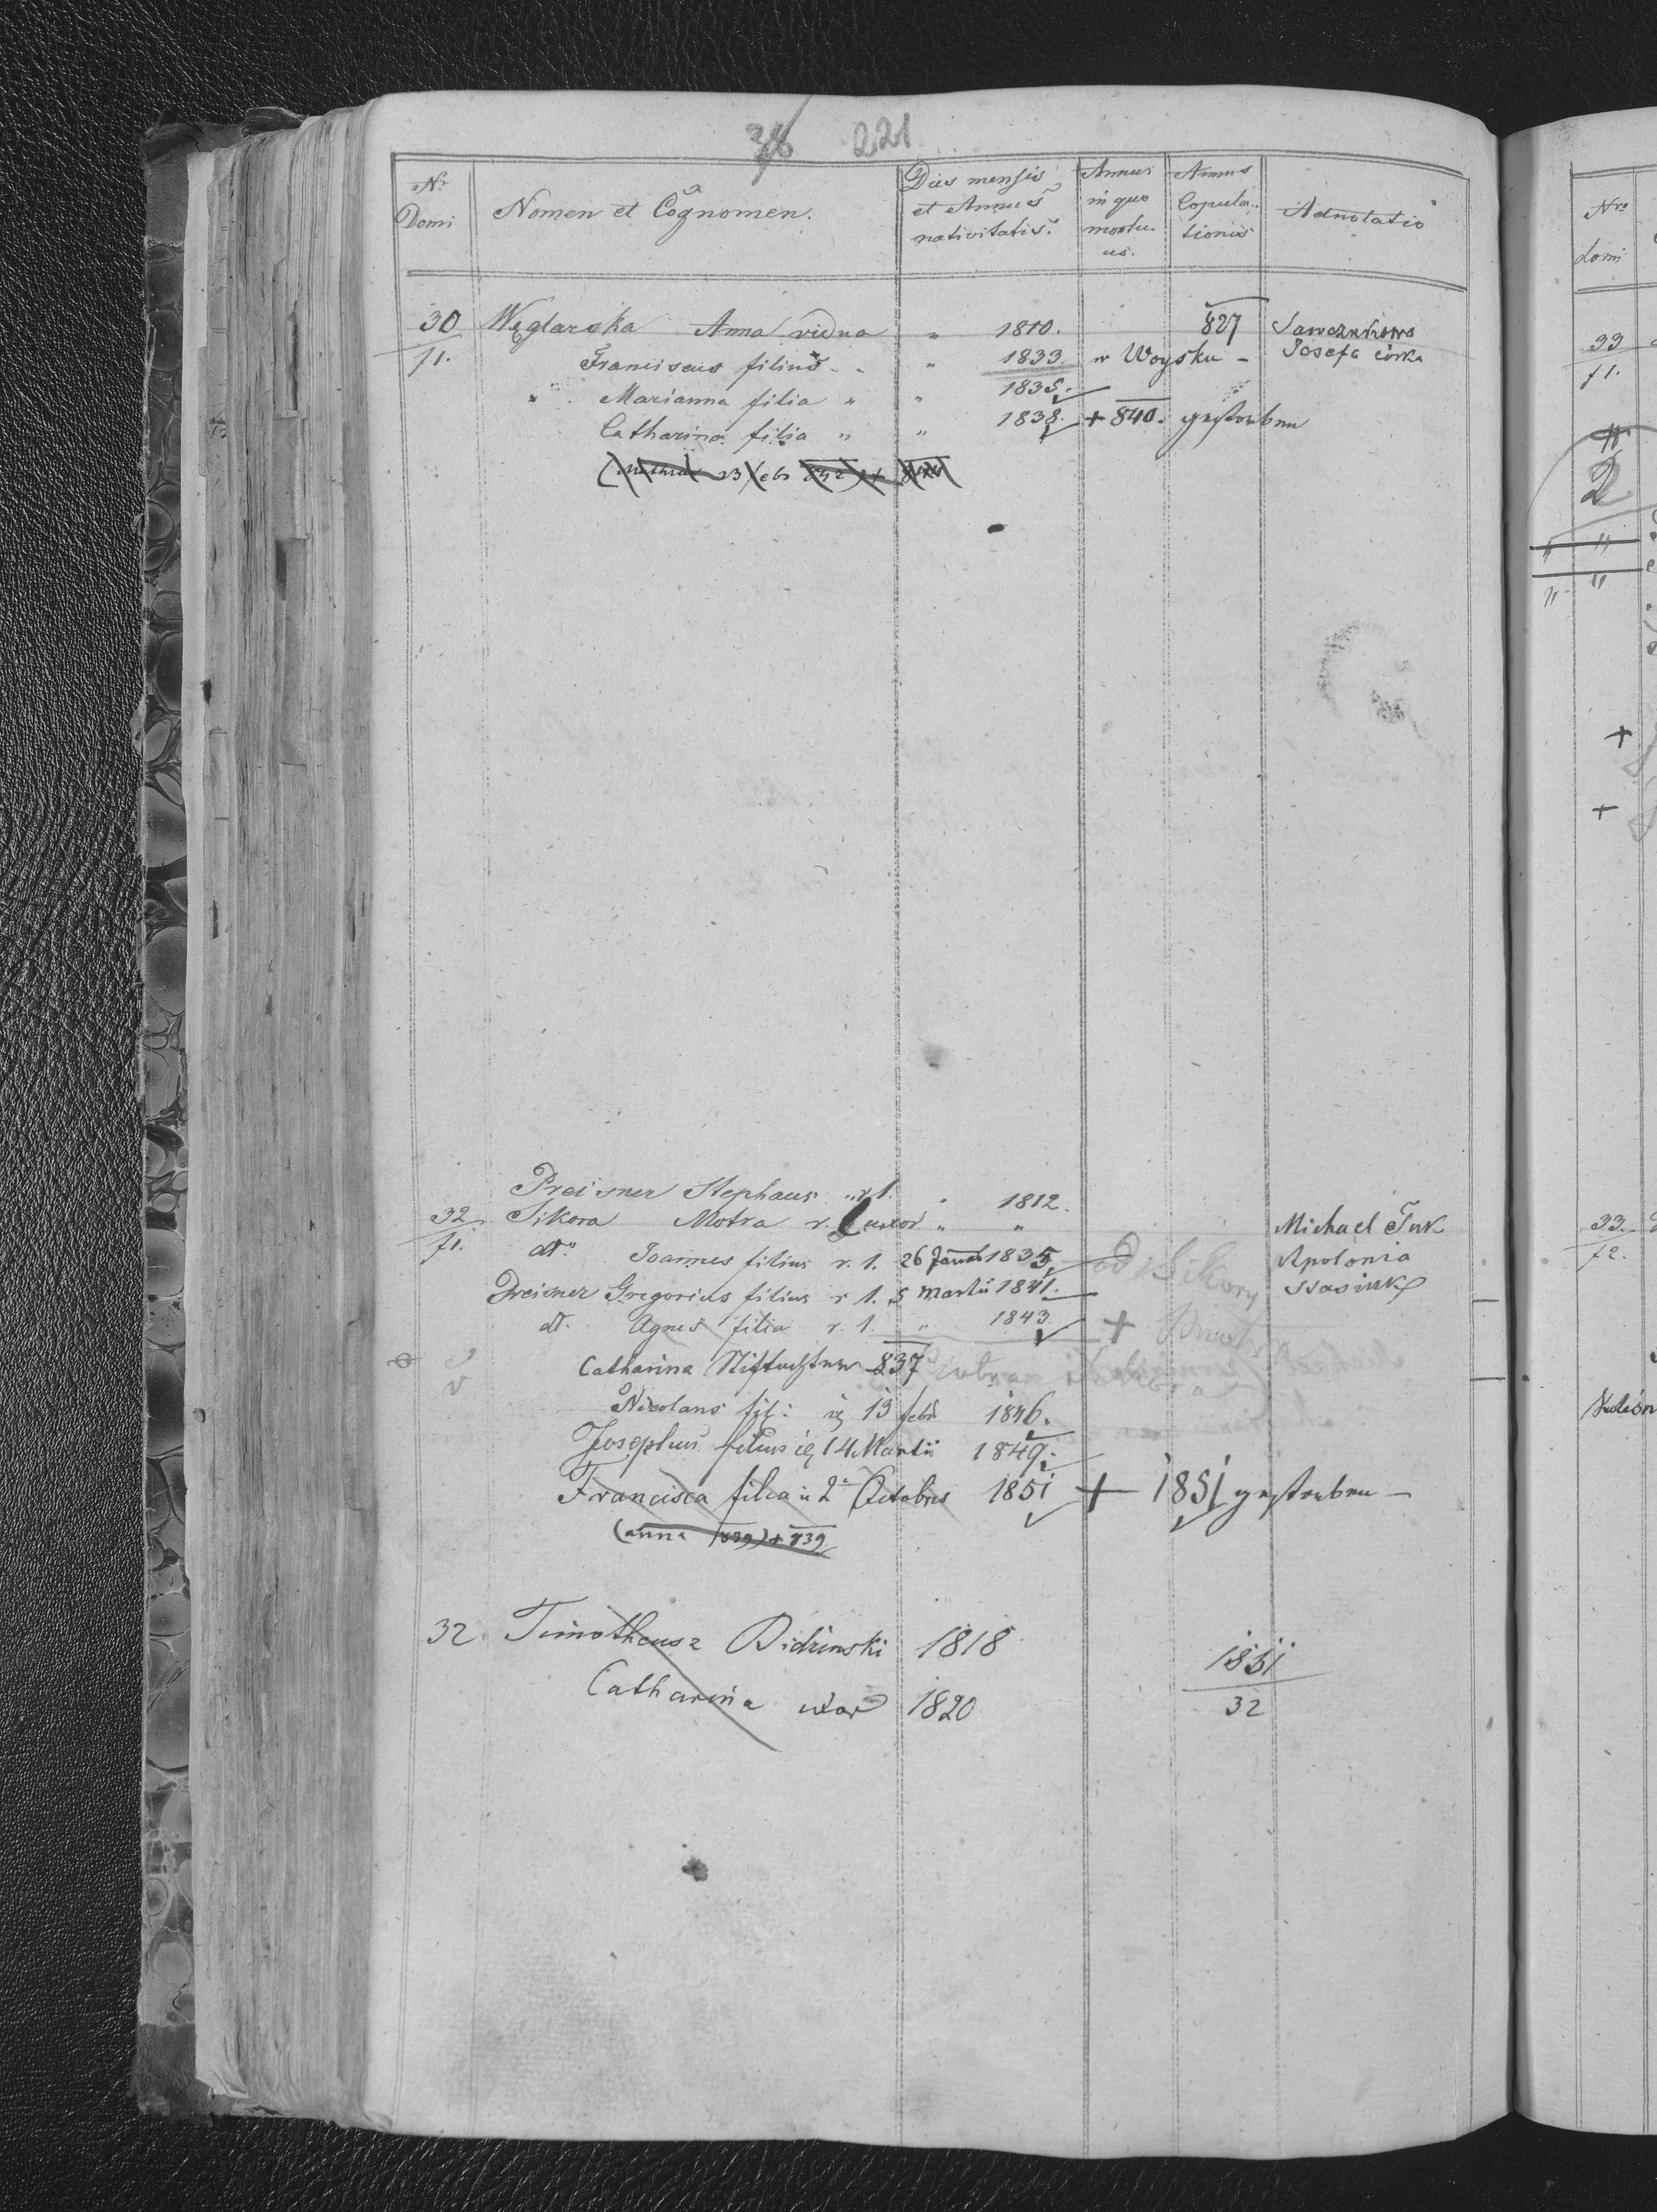 38 221
Nr Domi
Nomen et Cognomen.
Dies mensis et Annus nativitatis.
Annus in quo mortuus.
Annus Copulationis
Adnotatio
30 Węglarska Anna vidua " 1810. 827 Sawczukowa
f1. Franciscus filius - - " 1833. w Woysku - Josefa córka
" Marianna filia " " 1835.
Catharina filia " " 1838. + 840. gestorben
23 Feb 842 +
Preisner Stephanus " r 1. " 1812.
32. Sikora Motra r. 2 uxor " " Michael Tuk
f1. dto Joannes filius r. 1. 26 Januar 1835 od Sikory Apolonia
Preisner Gregorius filius r 1. 5 Martii 1841. Ssasiuk
dt. Agnes filia r. 1. " 1843. +
Catharina Stieftochter 837
Nicolaus fil: 13 febr 1846.
Josephus filius 14 Martii 1849.
Francisca filia 2 Octobris 1851 + 1851 gestorben -
(anna 839) + 839
32 Timotheusz Bidzinski 1818 1851
Catharina uxor 1820 32
Nro domi
33
f1.
2
33.
f2.